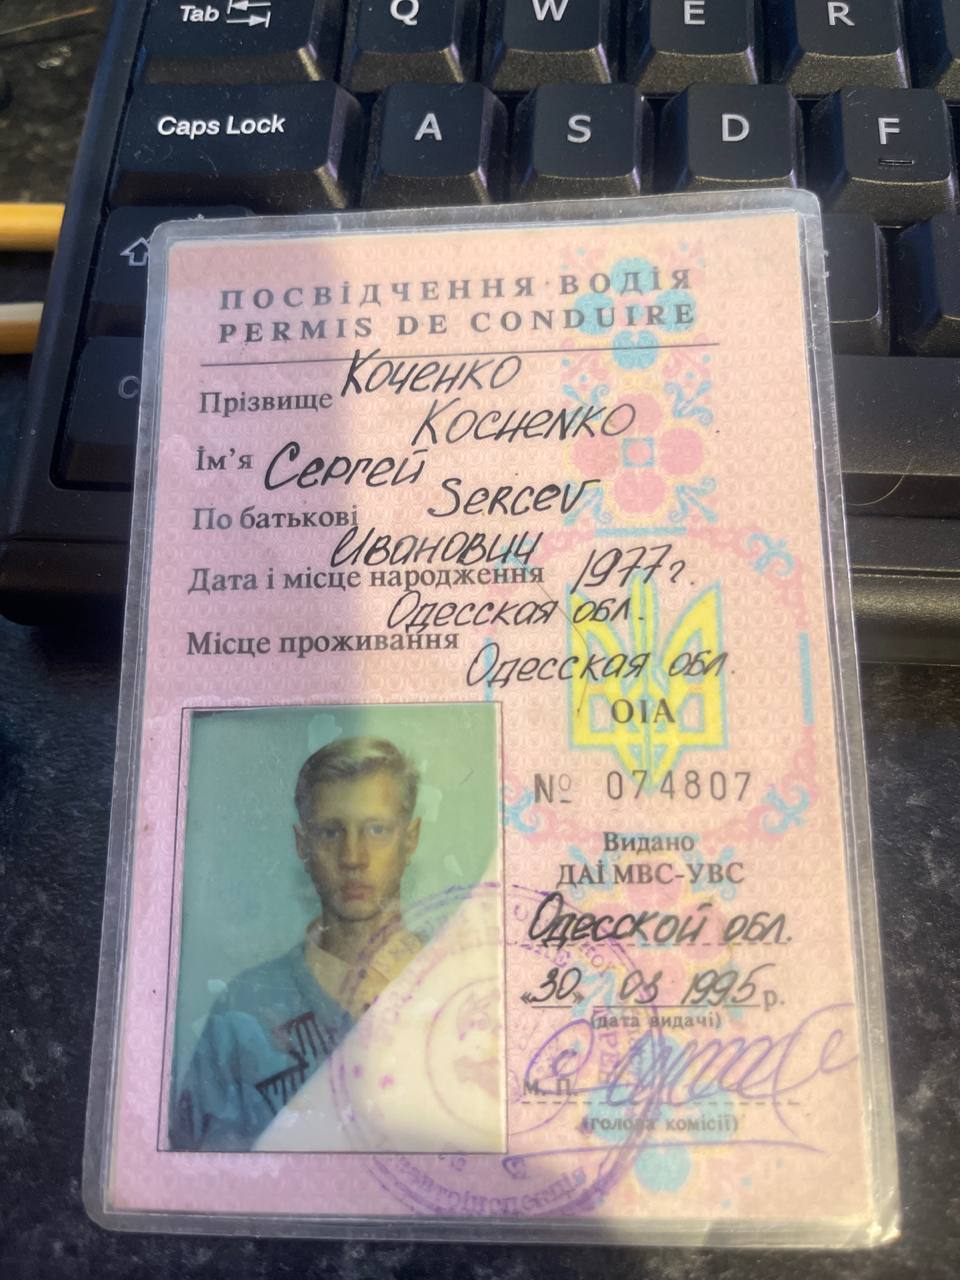 Tab
Q W E R
Caps Lock A S D F
ПОСВІДЧЕННЯ ВОДІЯ
PERMIS DE CONDUIRE
Прізвище Коченко
Kochenko
Ім'я Сергей
Sercev
По батькові
Иванович
Дата і місце народження 1977г.
Одесская обл.
Місце проживання
Одесская обл.
ОІА
№ 074807
Видано
ДАІ МВС-УВС
Одесской обл.
«30» 03 1995 р.
(дата видачі)
М. П.
(голова комісії)